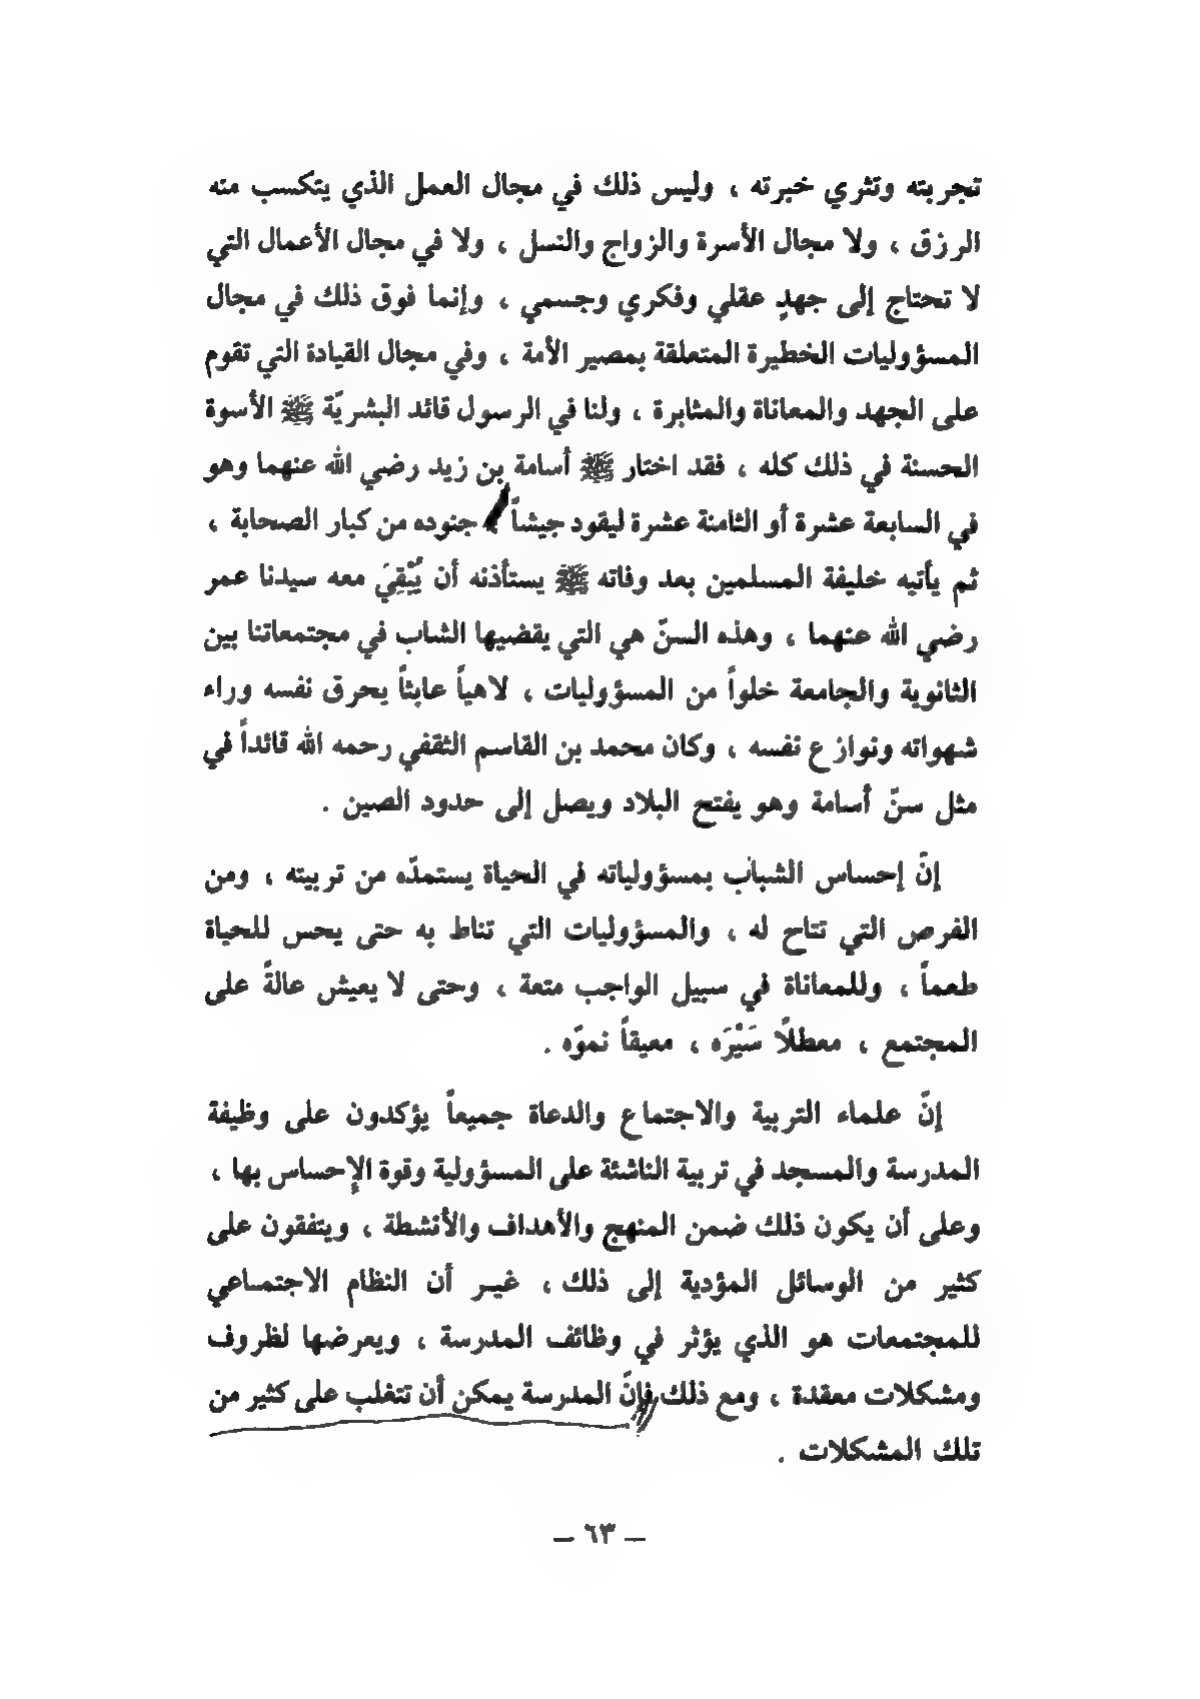 تجربته وتثري خبرته ، وليس ذلك في مجال العمل الذي يتكسب منه
الرزق ، ولا مجال الأسرة والزواج والنسل ، ولا في مجال الأعمال التي
لا تحتاج إلى جهدٍ عقلي وفكري وجسمي ، وإنما فوق ذلك في مجال
المسؤوليات الخطيرة المتعلقة بمصير الأمة ، وفي مجال القيادة التي تقوم
على الجهد والمعاناة والمثابرة ، ولنا في الرسول قائد البشريّة ﷺ الأسوة
الحسنة في ذلك كله ، فقد اختار ﷺ أسامة بن زيد رضي الله عنهما وهو
في السابعة عشرة أو الثامنة عشرة ليقود جيشاً جنوده من كبار الصحابة ،
ثم يأتيه خليفة المسلمين بعد وفاته ﷺ يستأذنه أن يُبْقِيَ معه سيدنا عمر
رضي الله عنهما ، وهذه السنّ هي التي يقضيها الشاب في مجتمعاتنا بين
الثانوية والجامعة خلواً من المسؤوليات ، لاهياً عابثاً يحرق نفسه وراء
شهواته ونوازع نفسه ، وكان محمد بن القاسم الثقفي رحمه الله قائداً في
مثل سنّ أسامة وهو يفتح البلاد ويصل إلى حدود الصين .
إنّ إحساس الشباب بمسؤولياته في الحياة يستمدّه من تربيته ، ومن
الفرص التي تتاح له ، والمسؤوليات التي تناط به حتى يحس للحياة
طعماً ، وللمعاناة في سبيل الواجب متعة ، وحتى لا يعيش عالةً على
المجتمع ، معطلاً سَيْرَه ، معيقاً نموّه .
إنّ علماء التربية والاجتماع والدعاة جميعاً يؤكدون على وظيفة
المدرسة والمسجد في تربية الناشئة على المسؤولية وقوة الإحساس بها ،
وعلى أن يكون ذلك ضمن المنهج والأهداف والأنشطة ، ويتفقون على
كثير من الوسائل المؤدية إلى ذلك ، غير أن النظام الاجتماعي
للمجتمعات هو الذي يؤثر في وظائف المدرسة ، ويعرضها لظروف
ومشكلات معقدة ، ومع ذلك فإنّ المدرسة يمكن أن تتغلب على كثير من
تلك المشكلات .
— ٦٣ —